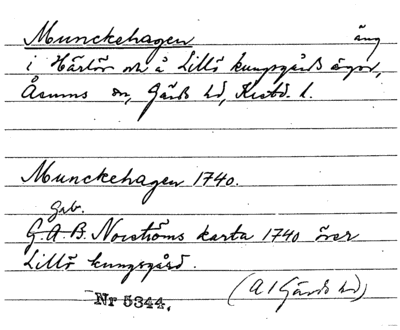 Munckehagen äng
i Härlöv och å Lillö kungsgårds ägor,
Åsums sn, Gärds hd, Krist. l.
Munckehagen 1740.
Gab.
G. A. B. Norströms karta 1740 över
Lillö kungsgård.
(A 1 Gärds hd)
Nr 5344.